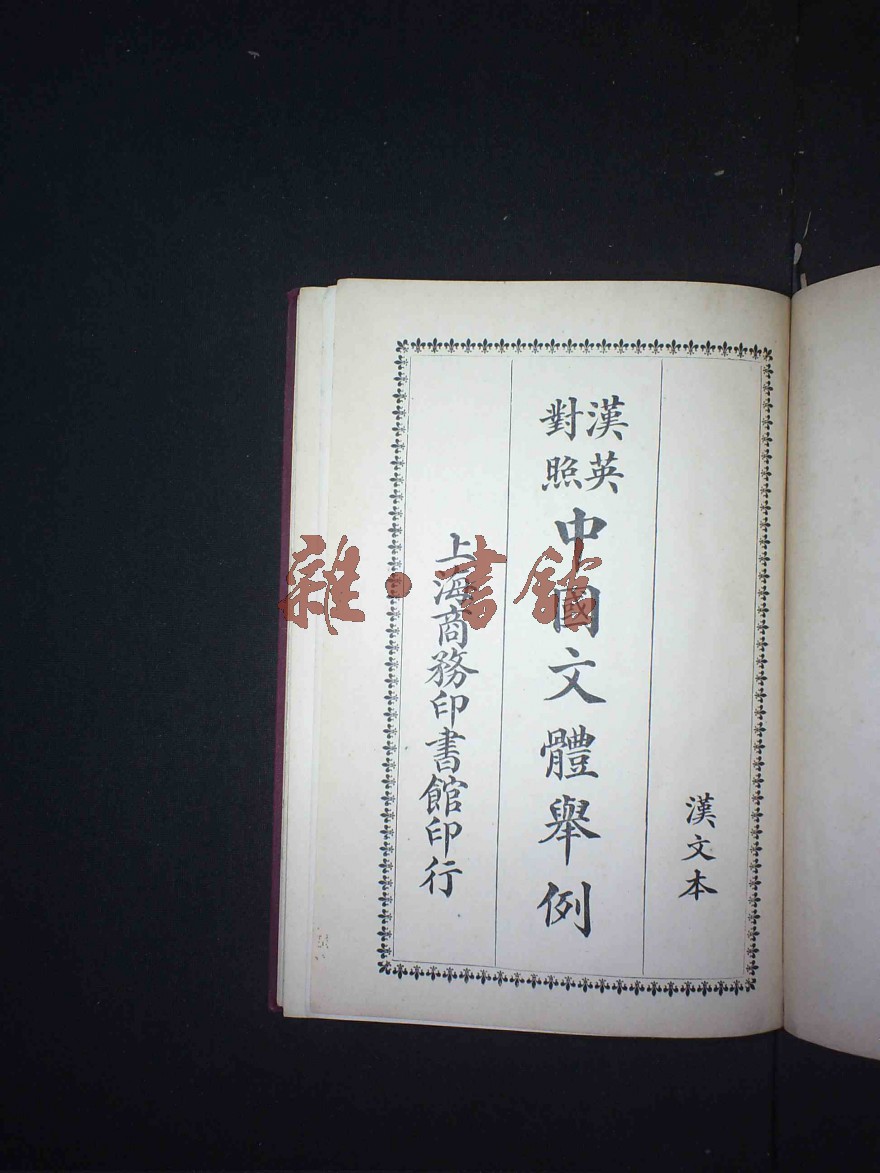 漢文本
漢英
對照
中國文體舉例
上海商務印書館印行
雜·書館